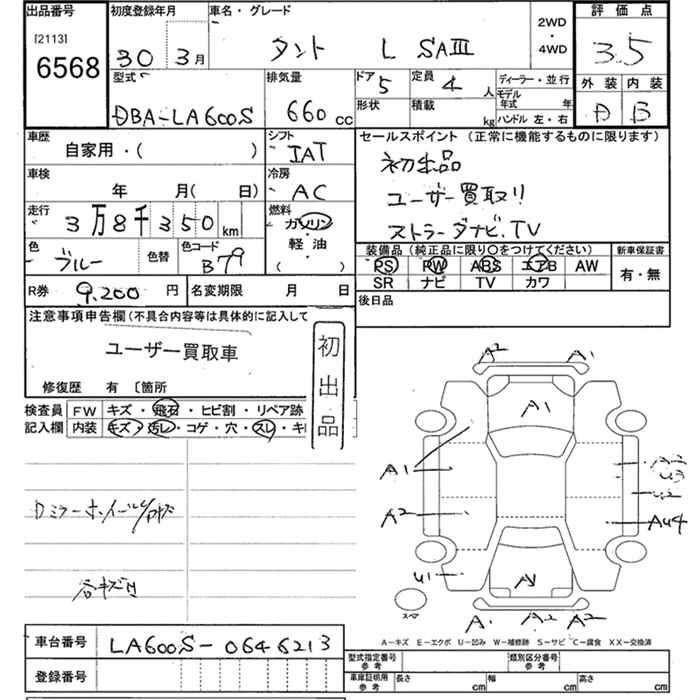 出品番号 初度登録年月 車名・グレード 2WD・4WD 評価点
[2113]
6568
30 3月 タント L SAIII 3.5
型式 排気量 ドア 定員 ディーラー・並行 外装 内装
DBA-LA600S 660cc 5 4人 モデル年式 年 B
形状 積載 kg ハンドル 左・右
車歴 シフト セールスポイント (正常に機能するものに限ります)
自家用・( ) IAT 初出品
車検 冷房
年 月( 日) AC ユーザー買取り
走行 燃料
3万8千350km ガソリン ストラーダナビ.TV
軽・油
( )
色 色替 色コード 装備品 (純正品に限り〇をつけてください) 新車保証書
ブルー B79 PS PW ABS エアB AW 有・無
SR ナビ TV カワ
R券 9,200円 名変期限 月 日 後日品
注意事項申告欄(不具合内容等は具体的に記入して
ユーザー買取車 初出品
修復歴 有 〔箇所
検査員記入欄 FW キズ・飛石・ヒビ割・リペア跡
内装 キズ・汚レ・コゲ・穴・スレ・キ
A2 A1
A1
A1
A2 AU4
U1
スペ
A2 A2
A-キズ E-エクボ U-凹み W-補修跡 S-サビ C-腐食 XX-交換済
車台番号 LA600S-0646213
型式指定番号 参考 類別区分番号 参考
登録番号 車庫証明用 参考 長さ cm 幅 cm 高さ cm